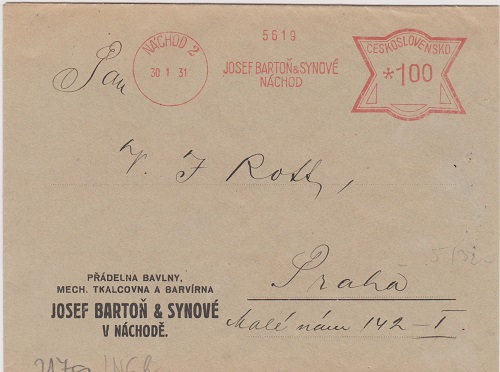 NÁCHOD 2
30 · 1 · 31
5619
JOSEF BARTOŇ & SYNOVÉ
NÁCHOD
ČESKOSLOVENSKO
*100
Pan
V. J Rott,
Praha
Malé nám 142-I.
PŘÁDELNA BAVLNY,
MECH. TKALCOVNA A BARVÍRNA
JOSEF BARTOŇ & SYNOVÉ
V NÁCHODĚ.